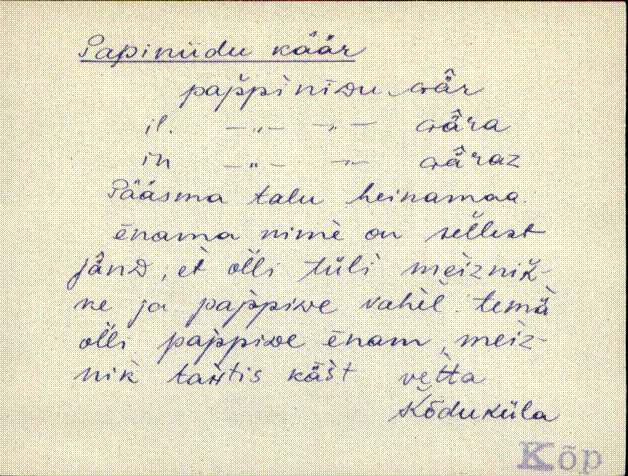 Papiniidu käär
pap̀pinìᴅu kär̂
il. —„— —„— kär̂a
in —„— —„— kär̂az
Pääsma talu heinamaa.
ēnama nime on sel̀lest
jänᴅ, et ol̀li tüli meiznik-
ne ja pap̀piᴅe vahel. temä
ol̀li pap̀piᴅe ēnam, meiz-
nik tahtis käst vet̀ta
Kõduküla
Kõp